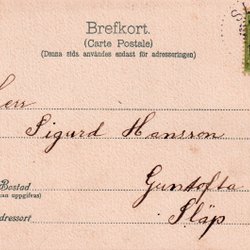 Brefkort.
(Carte Postale)
(Denna sida användes endast för adresseringen)
Herr
Sigurd Hansson
Bostad
Guntofta
(kan uppgifvas)
Släp
Adressort